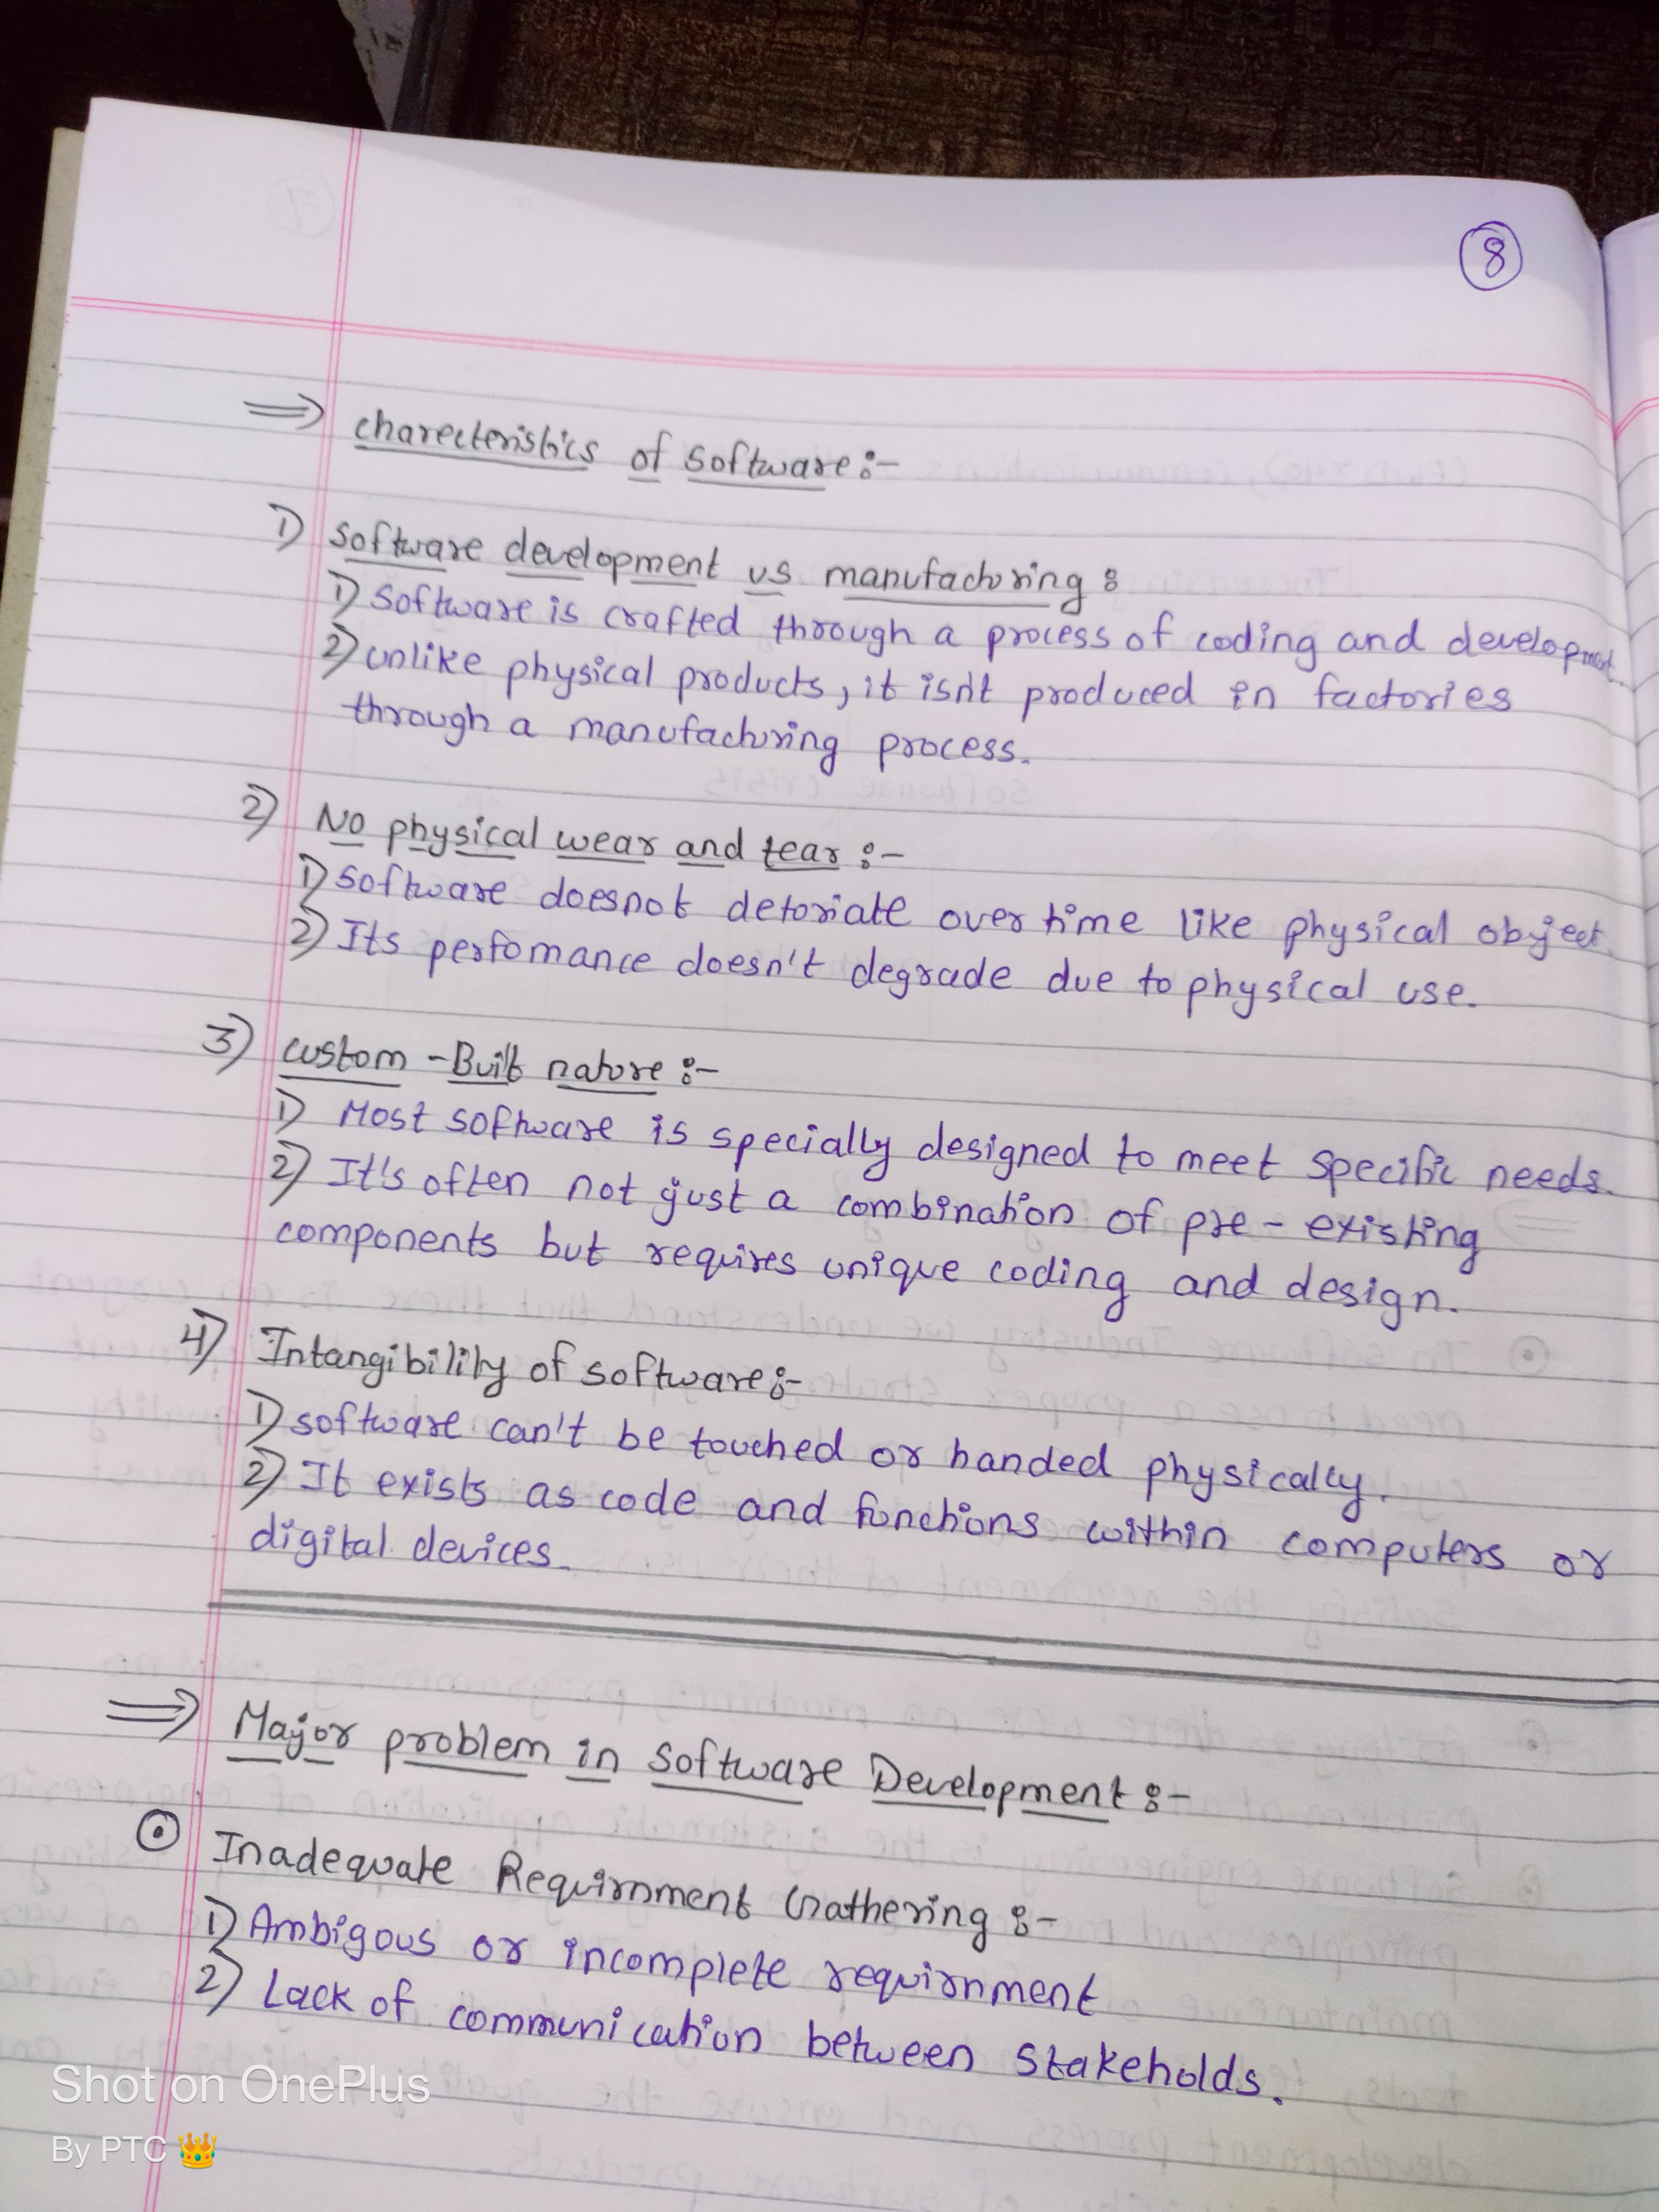 8
⇒ charecteristics of software :-
1) Software development vs manufacturing :
1) Software is crafted through a process of coding and development.
2) unlike physical products, it isn't produced in factories
through a manufacturing process.
2) No physical wear and tear :-
1) Software doesnot detoriate over time like physical object
2) Its perfomance doesn't degrade due to physical use.
3) custom - Built nature :-
1) Most software is specially designed to meet specific needs.
2) It's often not just a combination of pre - existing
components but requires unique coding and design.
4) Intangibility of software :-
1) software can't be touched or handed physically.
2) It exists as code and functions within computers or
digital devices.
⇒ Major problem in Software Development :-
⊙ Inadequate Requirnment Gathering :-
1) Ambigous or incomplete requirnment
2) Lack of communication between Stakeholds.
Shot on OnePlus
By PTC 👑